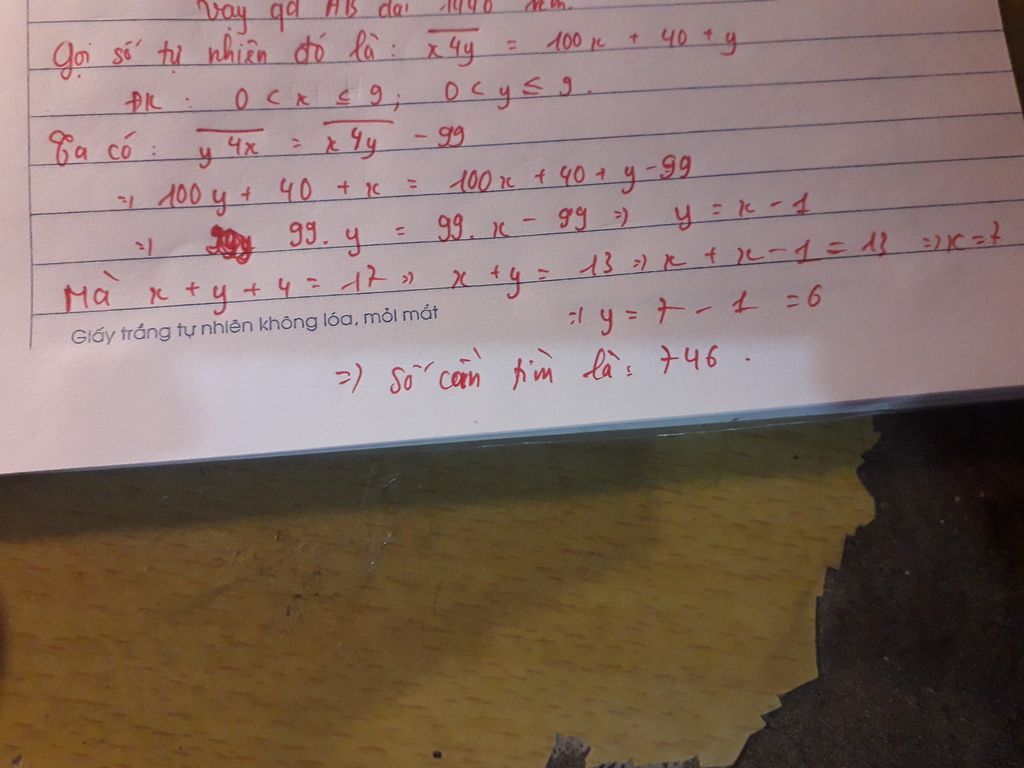 Vậy qđ AB dài 1440 km.
Gọi số tự nhiên đó là: x4y = 100x + 40 + y
ĐK: 0 < x ≤ 9; 0 < y ≤ 9.
Ta có: y4x = x4y - 99
=> 100y + 40 + x = 100x + 40 + y - 99
=> 99.y = 99.x - 99 => y = x - 1
Mà x + y + 4 = 17 => x + y = 13 => x + x - 1 = 13 => x = 7
Giấy trắng tự nhiên không lóa, mỏi mắt
=> y = 7 - 1 = 6
=> số cần tìm là: 746.